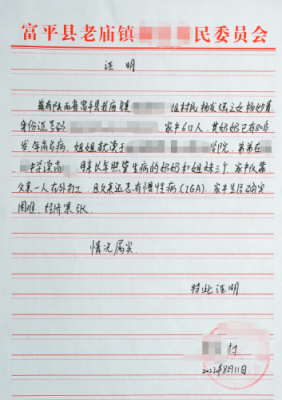 富平县老庙镇 民委员会
证 明
兹有陕西省富平县老庙镇 组村民杨发强之女杨妙蔓
身份证号码 家中6口人，其奶奶已有80多
岁 年高病，姐姐就读于 学院，弟弟在
中学读高 母亲长年照管生病的奶奶和姐妹三个，家中仅靠
父亲一人在外打工，且父亲还患有慢性病（IGA），家中生活确实
困难，经济紧张
情况属实
特此证明
村
2022年8月11日